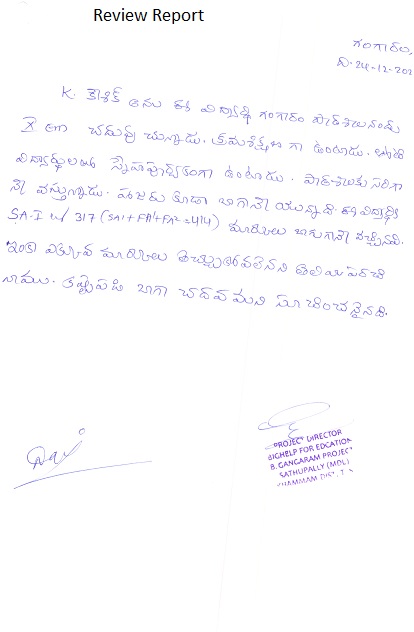 Review Report
గంగారం,
ది-24-12-202
K. కౌశిక్ అను ఈ విద్యార్థి గంగారం పాఠశాలనందు
X వ చదువు చున్నాడు. క్రమశిక్షణ గా ఉంటాడు. తోటి
విద్యార్థులతో స్నేహపూర్వకంగా ఉంటాడు. పాఠశాలకు సరిగా
నే వస్తున్నాడు. హాజరు కూడా బాగానే యున్నది. ఈ విద్యార్థికి
SA-I లో 317 (SA1+FA1+FA2=414) మార్కులు బాగుగానే వచ్చినవి.
ఇంకా ఎక్కువ మార్కులు తెచ్చుకోవలెనని తెలియ పరచి
నాము. కష్టపడి బాగా చదవమని సూచించడైనది.
PROJECT DIRECTOR
BIGHELP FOR EDCATION
B. GANGARAM PROJECT
SATHUPALLY (MDL)
KHAMMAM DIST. T.S